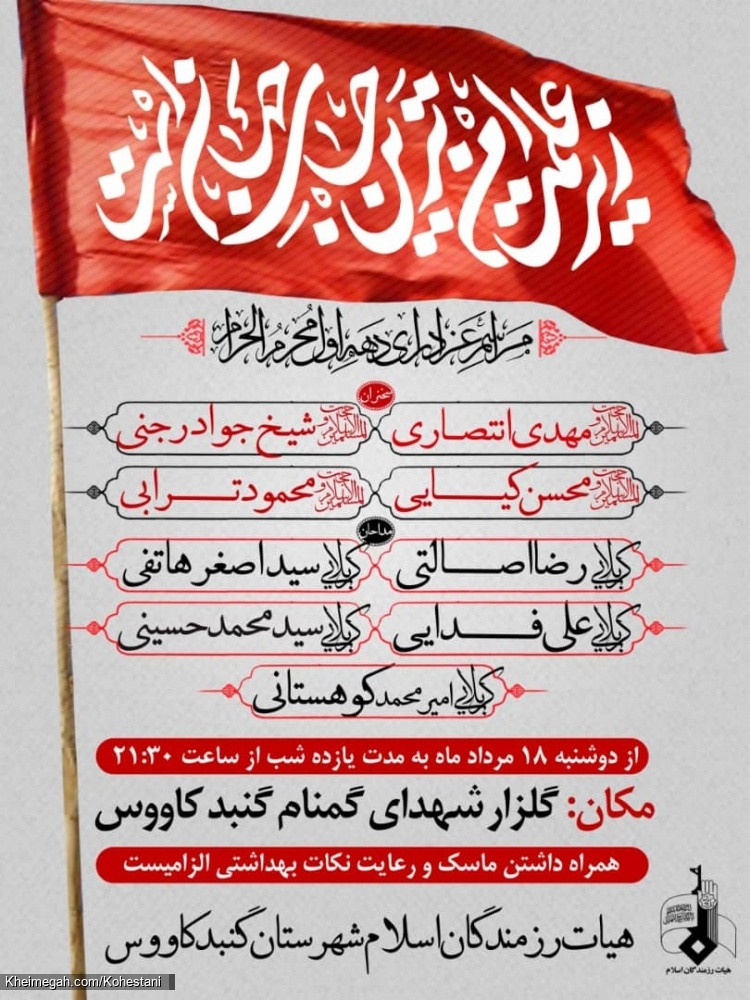 زیر علمت امن ترین جای جهان است
مراسم عزاداری دهه اول محرم الحرام
سخنران
حجت الاسلام والمسلمین مهدی انتصاری
حجت الاسلام والمسلمین شیخ جواد رجنی
حجت الاسلام والمسلمین محسن کیایی
حجت الاسلام والمسلمین محمود ترابی
مداحان
کربلایی رضا اصالتی
کربلایی سید اصغر هاتفی
کربلایی علی فدایی
کربلایی سید محمد حسینی
کربلایی امیر محمد کوهستانی
از دوشنبه ۱۸ مرداد ماه به مدت یازده شب از ساعت ۲۱:۳۰
مکان: گلزار شهدای گمنام گنبد کاووس
همراه داشتن ماسک و رعایت نکات بهداشتی الزامیست
هیات رزمندگان اسلام شهرستان گنبد کاووس
هیات رزمندگان اسلام
Kheimegah.com/Kohestani